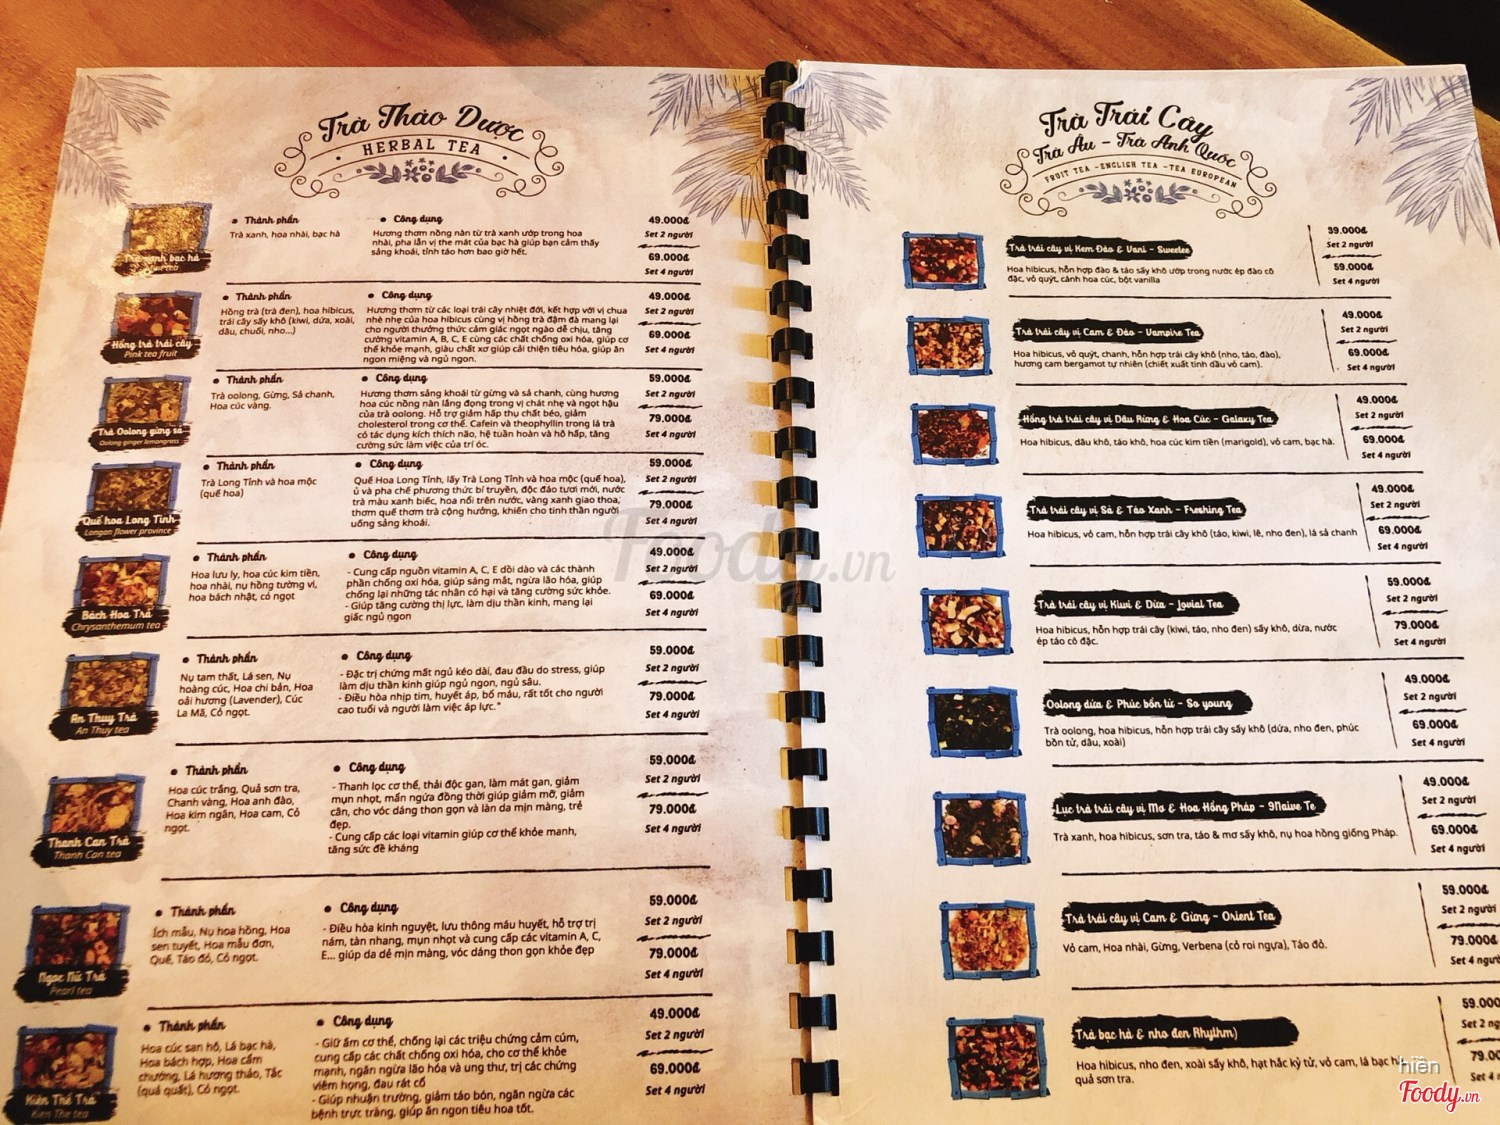 Trà Thảo Dược
HERBAL TEA
Trà xanh bạc hà
Thành phần
Trà xanh, hoa nhài, bạc hà
Công dụng
Hương thơm nồng nàn từ trà xanh ướp trong hoa
nhài, pha lẫn vị the mát của bạc hà giúp bạn cảm thấy
sảng khoái, tỉnh táo hơn bao giờ hết.
49.000đ
Set 2 người
69.000đ
Set 4 người
Hồng trà trái cây
Pink tea fruit
Thành phần
Hồng trà (trà đen), hoa hibicus,
trái cây sấy khô (kiwi, dứa, xoài,
dâu, chuối, nho...)
Công dụng
Hương thơm từ các loại trái cây nhiệt đới, kết hợp với vị chua
nhè nhẹ của hoa hibicus cùng vị hồng trà đậm đà mang lại
cho người thưởng thức cảm giác ngọt ngào dễ chịu, tăng
cường vitamin A, B, C, E cùng các chất chống oxi hóa, giúp cơ
thể khỏe mạnh, giàu chất xơ giúp cải thiện tiêu hóa, giúp ăn
ngon miệng và ngủ ngon.
49.000đ
Set 2 người
69.000đ
Set 4 người
Trà Oolong gừng sả
Oolong ginger lemongrass
Thành phần
Trà oolong, Gừng, Sả chanh,
Hoa cúc vàng.
Công dụng
Hương thơm sảng khoái từ gừng và sả chanh, cùng hương
hoa cúc nồng nàn lắng đọng trong vị chát nhẹ và ngọt hậu
của trà oolong. Hỗ trợ giảm hấp thụ chất béo, giảm
cholesterol trong cơ thể. Cafein và theophyllin trong lá trà
có tác dụng kích thích não, hệ tuần hoàn và hô hấp, tăng
cường sức làm việc của trí óc.
59.000đ
Set 2 người
79.000đ
Set 4 người
Quế hoa Long Tỉnh
Longan flower province
Thành phần
Trà Long Tỉnh và hoa mộc
(quế hoa)
Công dụng
Quế Hoa Long Tỉnh, lấy Trà Long Tỉnh và hoa mộc (quế hoa),
ủ và pha chế phương thức bí truyền, độc đáo tươi mới, nước
trà màu xanh biếc, hoa nổi trên nước, vàng xanh giao thoa,
thơm quế thơm trà cộng hưởng, khiến cho tinh thần người
uống sảng khoái.
59.000đ
Set 2 người
79.000đ
Set 4 người
Bách Hoa Trà
Chrysanthemum tea
Thành phần
Hoa lưu ly, hoa cúc kim tiền,
hoa nhài, nụ hồng tường vi,
hoa bách nhật, cỏ ngọt
Công dụng
- Cung cấp nguồn vitamin A, C, E dồi dào và các thành
phần chống oxi hóa, giúp sáng mắt, ngừa lão hóa, giúp
chống lại những tác nhân có hại và tăng cường sức khỏe.
- Giúp tăng cường thị lực, làm dịu thần kinh, mang lại
giấc ngủ ngon
49.000đ
Set 2 người
69.000đ
Set 4 người
An Thuy Trà
An Thuy tea
Thành phần
Nụ tam thất, Lá sen, Nụ
hoàng cúc, Hoa chi bản, Hoa
oải hương (Lavender), Cúc
La Mã, Cỏ ngọt.
Công dụng
- Đặc trị chứng mất ngủ kéo dài, đau đầu do stress, giúp
làm dịu thần kinh giúp ngủ ngon, ngủ sâu.
- Điều hòa nhịp tim, huyết áp, bổ máu, rất tốt cho người
cao tuổi và người làm việc áp lực."
59.000đ
Set 2 người
79.000đ
Set 4 người
Thanh Can Trà
Thanh Can tea
Thành phần
Hoa cúc trắng, Quả sơn tra,
Chanh vàng, Hoa anh đào,
Hoa kim ngân, Hoa cam, Cỏ
ngọt.
Công dụng
- Thanh lọc cơ thể, thải độc gan, làm mát gan, giảm
mụn nhọt, mẩn ngứa đồng thời giúp giảm mỡ, giảm
cân, cho vóc dáng thon gọn và làn da mịn màng, trẻ
đẹp.
- Cung cấp các loại vitamin giúp cơ thể khỏe mạnh,
tăng sức đề kháng
59.000đ
Set 2 người
79.000đ
Set 4 người
Ngọc Nữ Trà
Pearl tea
Thành phần
Ích mẫu, Nụ hoa hồng, Hoa
sen tuyết, Hoa mẫu đơn,
Quế, Táo đỏ, Cỏ ngọt.
Công dụng
- Điều hòa kinh nguyệt, lưu thông máu huyết, hỗ trợ trị
nám, tàn nhang, mụn nhọt và cung cấp các vitamin A, C,
E... giúp da dẻ mịn màng, vóc dáng thon gọn khỏe đẹp
59.000đ
Set 2 người
79.000đ
Set 4 người
Kiên Thể Trà
Kien The tea
Thành phần
Hoa cúc san hô, Lá bạc hà,
Hoa bách hợp, Hoa cẩm
chướng, Lá hương thảo, Tắc
(quả quất), Cỏ ngọt.
Công dụng
- Giữ ấm cơ thể, chống lại các triệu chứng cảm cúm,
cung cấp các chất chống oxi hóa, cho cơ thể khỏe
mạnh, ngăn ngừa lão hóa và ung thư, trị các chứng
viêm họng, đau rát cổ
- Giúp nhuận trường, giảm táo bón, ngăn ngừa các
bệnh trực tràng, giúp ăn ngon tiêu hoa tốt.
49.000đ
Set 2 người
69.000đ
Set 4 người
Trà Trái Cây
Trà Âu - Trà Anh Quốc
FRUIT TEA -ENGLISH TEA -TEA EUROPEAN
Trà trái cây vị Kem Đào & Vani - Sweetee
Hoa hibicus, hỗn hợp đào & táo sấy khô ướp trong nước ép đào cô
đặc, vỏ quýt, cánh hoa cúc, bột vanilla
39.000đ
Set 2 người
59.000đ
Set 4 người
Trà trái cây vị Cam & Đào - Vampire Tea
Hoa hibicus, vỏ quýt, chanh, hỗn hợp trái cây khô (nho, táo, đào),
hương cam bergamot tự nhiên (chiết xuất tinh dầu vỏ cam).
49.000đ
Set 2 người
69.000đ
Set 4 người
Hồng trà trái cây vị Dâu Rừng & Hoa Cúc - Galaxy Tea
Hoa hibicus, dâu khô, táo khô, hoa cúc kim tiền (marigold), vỏ cam, bạc hà.
49.000đ
Set 2 người
69.000đ
Set 4 người
Trà trái cây vị Sả & Táo Xanh - Freshing Tea
Hoa hibicus, vỏ cam, hỗn hợp trái cây khô (táo, kiwi, lê, nho đen), lá sả chanh
49.000đ
Set 2 người
69.000đ
Set 4 người
Trà trái cây vị Kiwi & Dừa - Jovial Tea
Hoa hibicus, hỗn hợp trái cây (kiwi, táo, nho đen) sấy khô, dừa, nước
ép táo cô đặc.
59.000đ
Set 2 người
79.000đ
Set 4 người
Oolong dứa & Phúc bồn tử - So young
Trà oolong, hoa hibicus, hỗn hợp trái cây sấy khô (dứa, nho đen, phúc
bồn tử, dâu, xoài)
49.000đ
Set 2 người
69.000đ
Set 4 người
Lục trà trái cây vị Mơ & Hoa Hồng Pháp - 9Naive Te
Trà xanh, hoa hibicus, sơn tra, táo & mơ sấy khô, nụ hoa hồng giống Pháp.
49.000đ
Set 2 người
69.000đ
Set 4 người
Trà trái cây vị Cam & Gừng - Orient Tea
Vỏ cam, Hoa nhài, Gừng, Verbena (cỏ roi ngựa), Táo đỏ.
59.000đ
Set 2 người
79.000đ
Set 4 ngườ
Trà bạc hà & nho đen Rhythm)
Hoa hibicus, nho đen, xoài sấy khô, hạt hắc kỷ tử, vỏ cam, lá bạc h
quả sơn tra.
59.000
Set 2 ng
79.0
Set 4
Foody.vn
hiền
Foody.vn